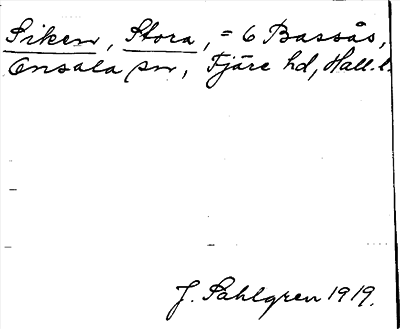 Siken, Stora, = 6 Bassås,
Onsala sn, Fjäre hd, Hall. l.
J. Sahlgren 1919.